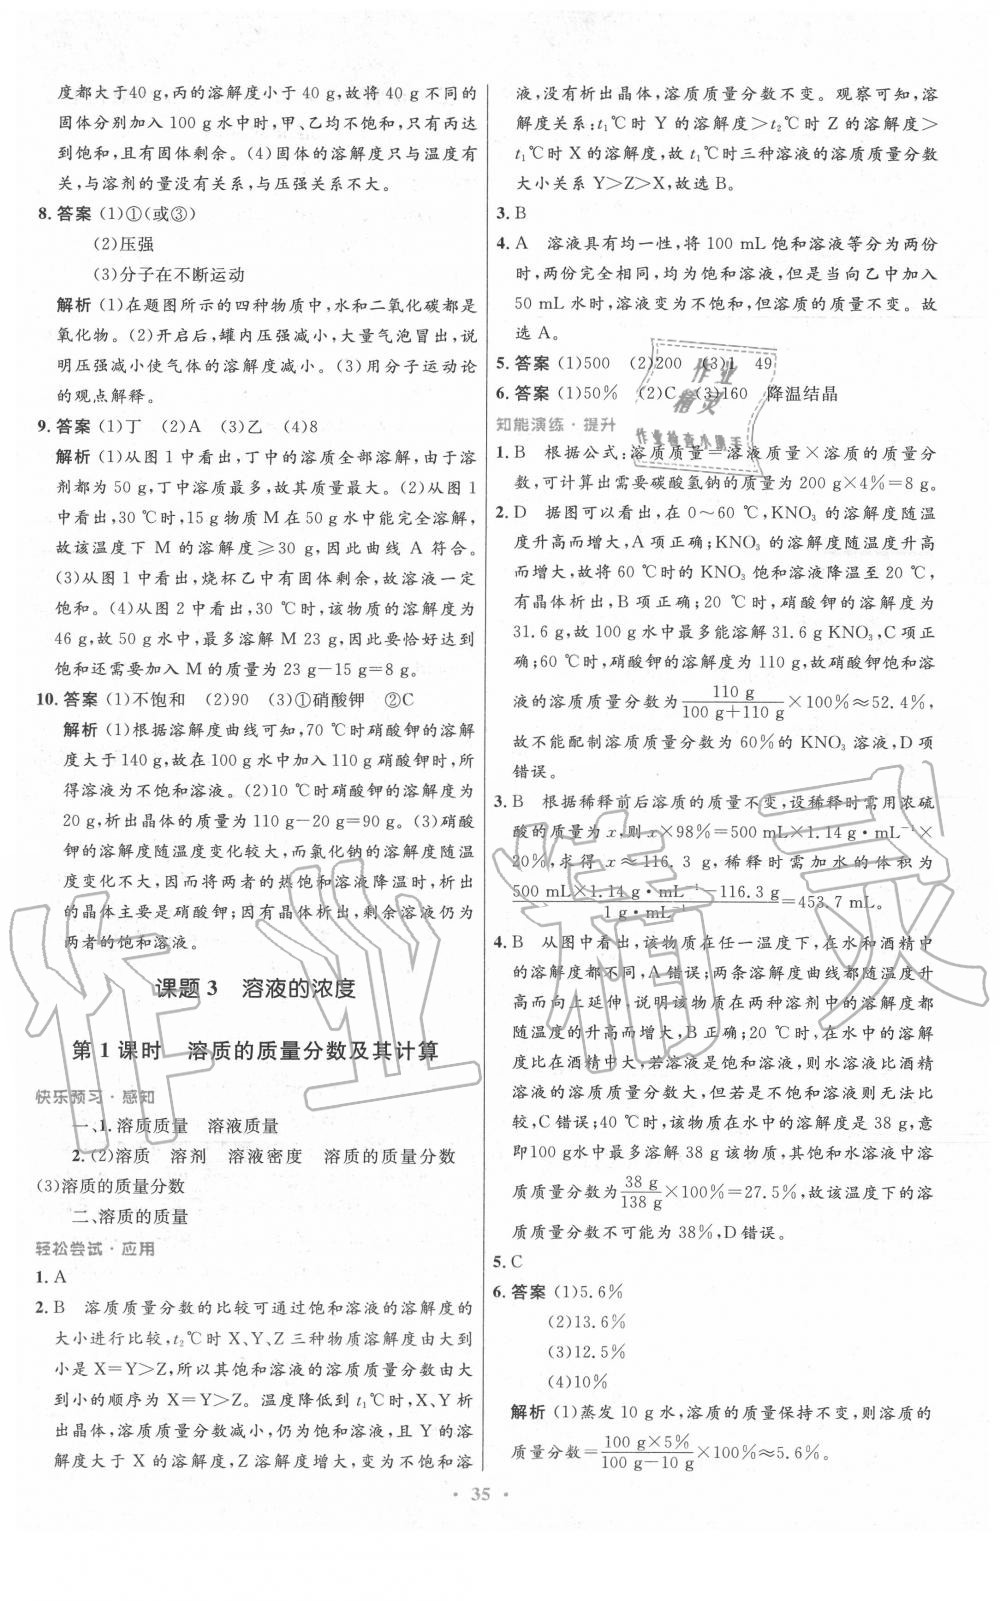 度都大于40 g,丙的溶解度小于 40 g,故将 40 g 不同的
固体分别加入 100 g 水中时,甲、乙均不饱和,只有丙达
到饱和,且有固体剩余。(4)固体的溶解度只与温度有
关,与溶剂的量没有关系,与压强关系不大。
8. 答案 (1)①(或③)
(2)压强
(3)分子在不断运动
解析 (1)在题图所示的四种物质中,水和二氧化碳都是
氧化物。(2)开启后,罐内压强减小,大量气泡冒出,说
明压强减小使气体的溶解度减小。(3)用分子运动论
的观点解释。
9. 答案 (1)丁 (2)A (3)乙 (4)8
解析 (1)从图 1 中看出,丁中的溶质全部溶解,由于溶
剂都为 50 g,丁中溶质最多,故其质量最大。(2)从图 1
中看出,30 ℃时,15 g 物质 M 在 50 g 水中能完全溶解,
故该温度下 M 的溶解度≥30 g,因此曲线 A 符合。
(3)从图 1 中看出,烧杯乙中有固体剩余,故溶液一定
饱和。(4)从图 2 中看出,30 ℃时,该物质的溶解度为
46 g,故 50 g 水中,最多溶解 M 23 g,因此要恰好达到
饱和还需要加入 M 的质量为 23 g−15 g=8 g。
10. 答案 (1)不饱和 (2)90 (3)①硝酸钾 ②C
解析 (1)根据溶解度曲线可知,70 ℃时硝酸钾的溶解度
大于 140 g,故在 100 g 水中加入 110 g 硝酸钾时,所
得溶液为不饱和溶液。(2)10 ℃时硝酸钾的溶解度为
20 g,析出晶体的质量为 110 g−20 g=90 g。(3)硝酸
钾的溶解度随温度变化较大,而氯化钠的溶解度随温
度变化不大,因而将两者的热饱和溶液降温时,析出
的晶体主要是硝酸钾;因有晶体析出,剩余溶液仍为
两者的饱和溶液。
课题 3 溶液的浓度
第 1 课时 溶质的质量分数及其计算
快乐预习·感知
一、1. 溶质质量 溶液质量
2. (2)溶质 溶剂 溶液密度 溶质的质量分数
(3)溶质的质量分数
二、溶质的质量
轻松尝试·应用
1. A
2. B 溶质质量分数的比较可通过饱和溶液的溶解度的
大小进行比较,t₂℃时 X、Y、Z 三种物质溶解度由大到
小是 X=Y>Z,所以其饱和溶液的溶质质量分数由大
到小的顺序为 X=Y>Z。温度降低到 t₁℃时,X、Y 析
出晶体,溶质质量分数减小,仍为饱和溶液,且 Y 的溶
解度大于 X 的溶解度,Z溶解度增大,变为不饱和溶
液,没有析出晶体,溶质质量分数不变。观察可知,溶
解度关系:t₁℃时 Y 的溶解度>t₂℃时 Z 的溶解度>
t₁℃时 X 的溶解度,故 t₁℃时三种溶液的溶质质量分数
大小关系 Y>Z>X,故选 B。
3. B
4. A 溶液具有均一性,将 100 mL 饱和溶液等分为两份
时,两份完全相同,均为饱和溶液,但是当向乙中加入
50 mL 水时,溶液变为不饱和,但溶质的质量不变。故
选 A。
5. 答案 (1)500 (2)200 (3)1 49
6. 答案 (1)50% (2)C (3)160 降温结晶
知能演练·提升
1. B 根据公式:溶质质量=溶液质量×溶质的质量分
数,可计算出需要碳酸氢钠的质量为 200 g×4%=8 g。
2. D 据图可以看出,在 0～60 ℃,KNO₃ 的溶解度随温
度升高而增大,A 项正确;KNO₃ 的溶解度随温度升高
而增大,故将 60 ℃时的 KNO₃ 饱和溶液降温至 20 ℃,
有晶体析出,B 项正确;20 ℃时,硝酸钾的溶解度为
31.6 g,故 100 g 水中最多能溶解 31.6 g KNO₃,C 项正
确;60 ℃时,硝酸钾的溶解度为 110 g,故硝酸钾饱和溶
液的溶质质量分数为 110 g/(100 g+110 g)×100%≈52.4%,
故不能配制溶质质量分数为 60%的 KNO₃ 溶液,D 项
错误。
3. B 根据稀释前后溶质的质量不变,设稀释时需用浓硫
酸的质量为 x,则 x×98%=500 mL×1.14 g·mL⁻¹×
20%,求得 x≈116.3 g,稀释时需加水的体积为
(500 mL×1.14 g·mL⁻¹−116.3 g)/(1 g·mL⁻¹)=453.7 mL。
4. B 从图中看出,该物质在任一温度下,在水和酒精中
的溶解度都不同,A 错误;两条溶解度曲线都随温度升
高而向上延伸,说明该物质在两种溶剂中的溶解度都
随温度的升高而增大,B 正确;20 ℃时,在水中的溶解
度比在酒精中大,若溶液是饱和溶液,则水溶液比酒精
溶液的溶质质量分数大,但若是不饱和溶液则无法比
较,C 错误;40 ℃时,该物质在水中的溶解度是 38 g,意
即100g水中最多溶解 38 g 该物质,其饱和水溶液中溶
质质量分数为 38 g/138 g×100%=27.5%,故该温度下的溶
质质量分数不可能为 38%,D 错误。
5. C
6. 答案 (1)5.6%
(2)13.6%
(3)12.5%
(4)10%
解析 (1)蒸发 10 g 水,溶质的质量保持不变,则溶质的
质量分数=(100 g×5%)/(100 g−10 g)×100%≈5.6%。
· 35 ·
作业精灵
作业
精灵
作业检查小助手